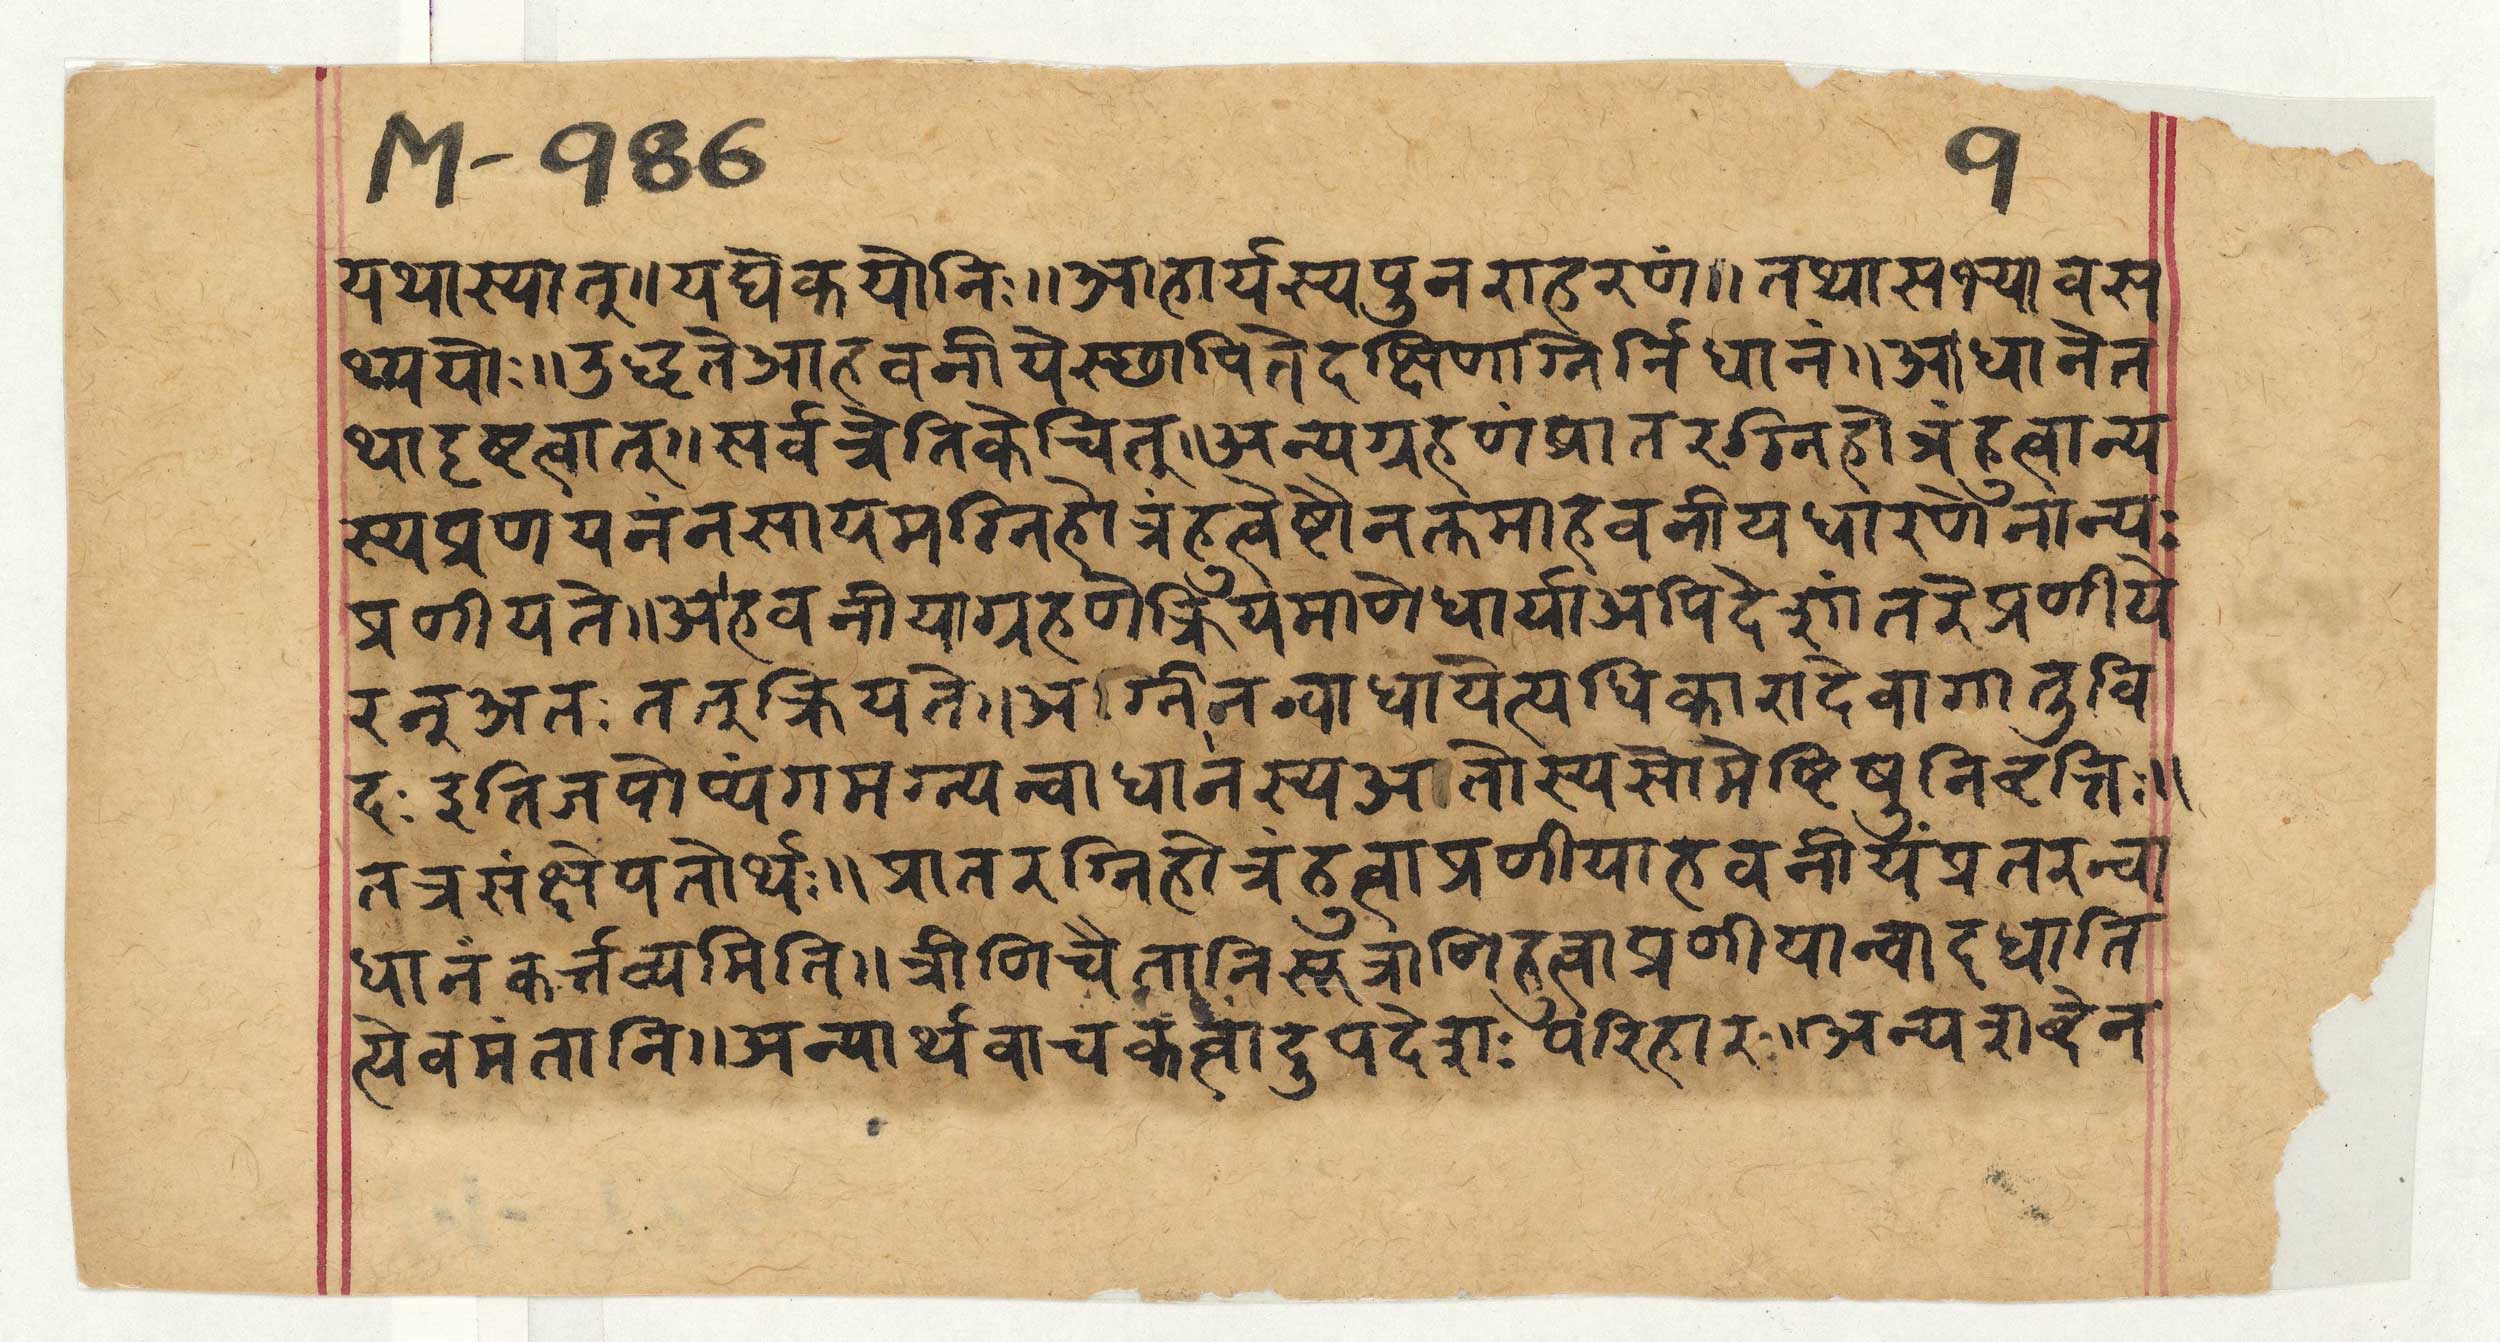 M-986
१
यथास्यात्॥यद्येकयोनिः॥आहार्यस्यपुनराहरणं॥तथासभ्यावस
थ्ययोः॥उद्धृतेआहवनीयेस्थापितेदक्षिणाग्नेर्निधानं॥आधानेत
थादृष्टत्वात्॥सर्वत्रेतिकेचित्॥अन्यग्रहणंप्रातरग्निहोत्रंहुत्वान्य
स्यप्रणयनंनसायमग्निहोत्रंहुत्वेष्टौनक्तमाहवनीयधारणेनान्यः
प्रणीयते॥आहवनीयाग्रहणेक्रियमाणेधार्याअपिदेशांतरेप्रणीये
रन्अतःतत्क्रियते॥अग्निनन्वाधायेत्यधिकारादेवागातुवि
दःइतिजपोप्यंगमग्न्यन्वाधानस्यआतोस्यसोमेष्टिषुनिवृत्तिः॥
तत्रसंक्षेपतोर्थः॥प्रातरग्निहोत्रंहुत्वाप्रणीयाहवनीयंप्रतरन्वा
धानंकर्त्तव्यमिति॥त्रीणिचैतानिसूत्राणिहुत्वाप्रणीयान्वादधाति
त्येवमंतानि॥अन्यार्थवाचकत्वादुपदेशःपरिहारः॥अन्यशब्देन